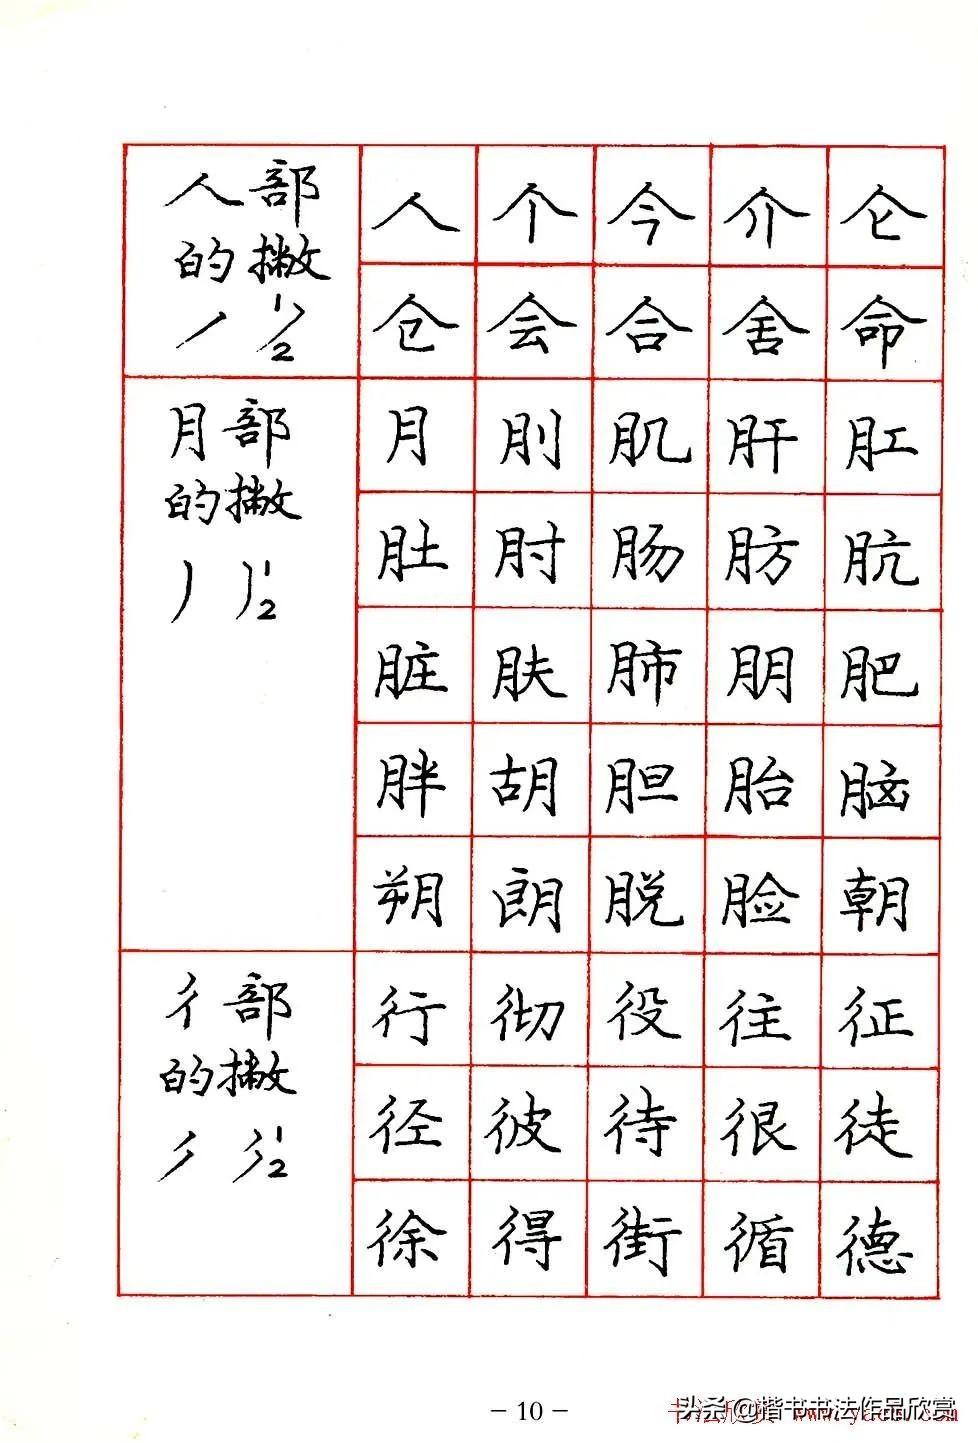 人部
的撇
丿 1 2
人 个 今 介 仑
仓 会 合 舍 命
月部
的撇
丿 1 2
月 刖 肌 肝 肛
肚 肘 肠 肪 肮
脏 肤 肺 朋 肥
胖 胡 胆 胎 脑
朔 朗 脱 脸 朝
彳部
的撇
1 2
行 彻 役 往 征
径 彼 待 很 徒
徐 得 街 循 德
- 10 -
头条@楷书书法作品欣赏